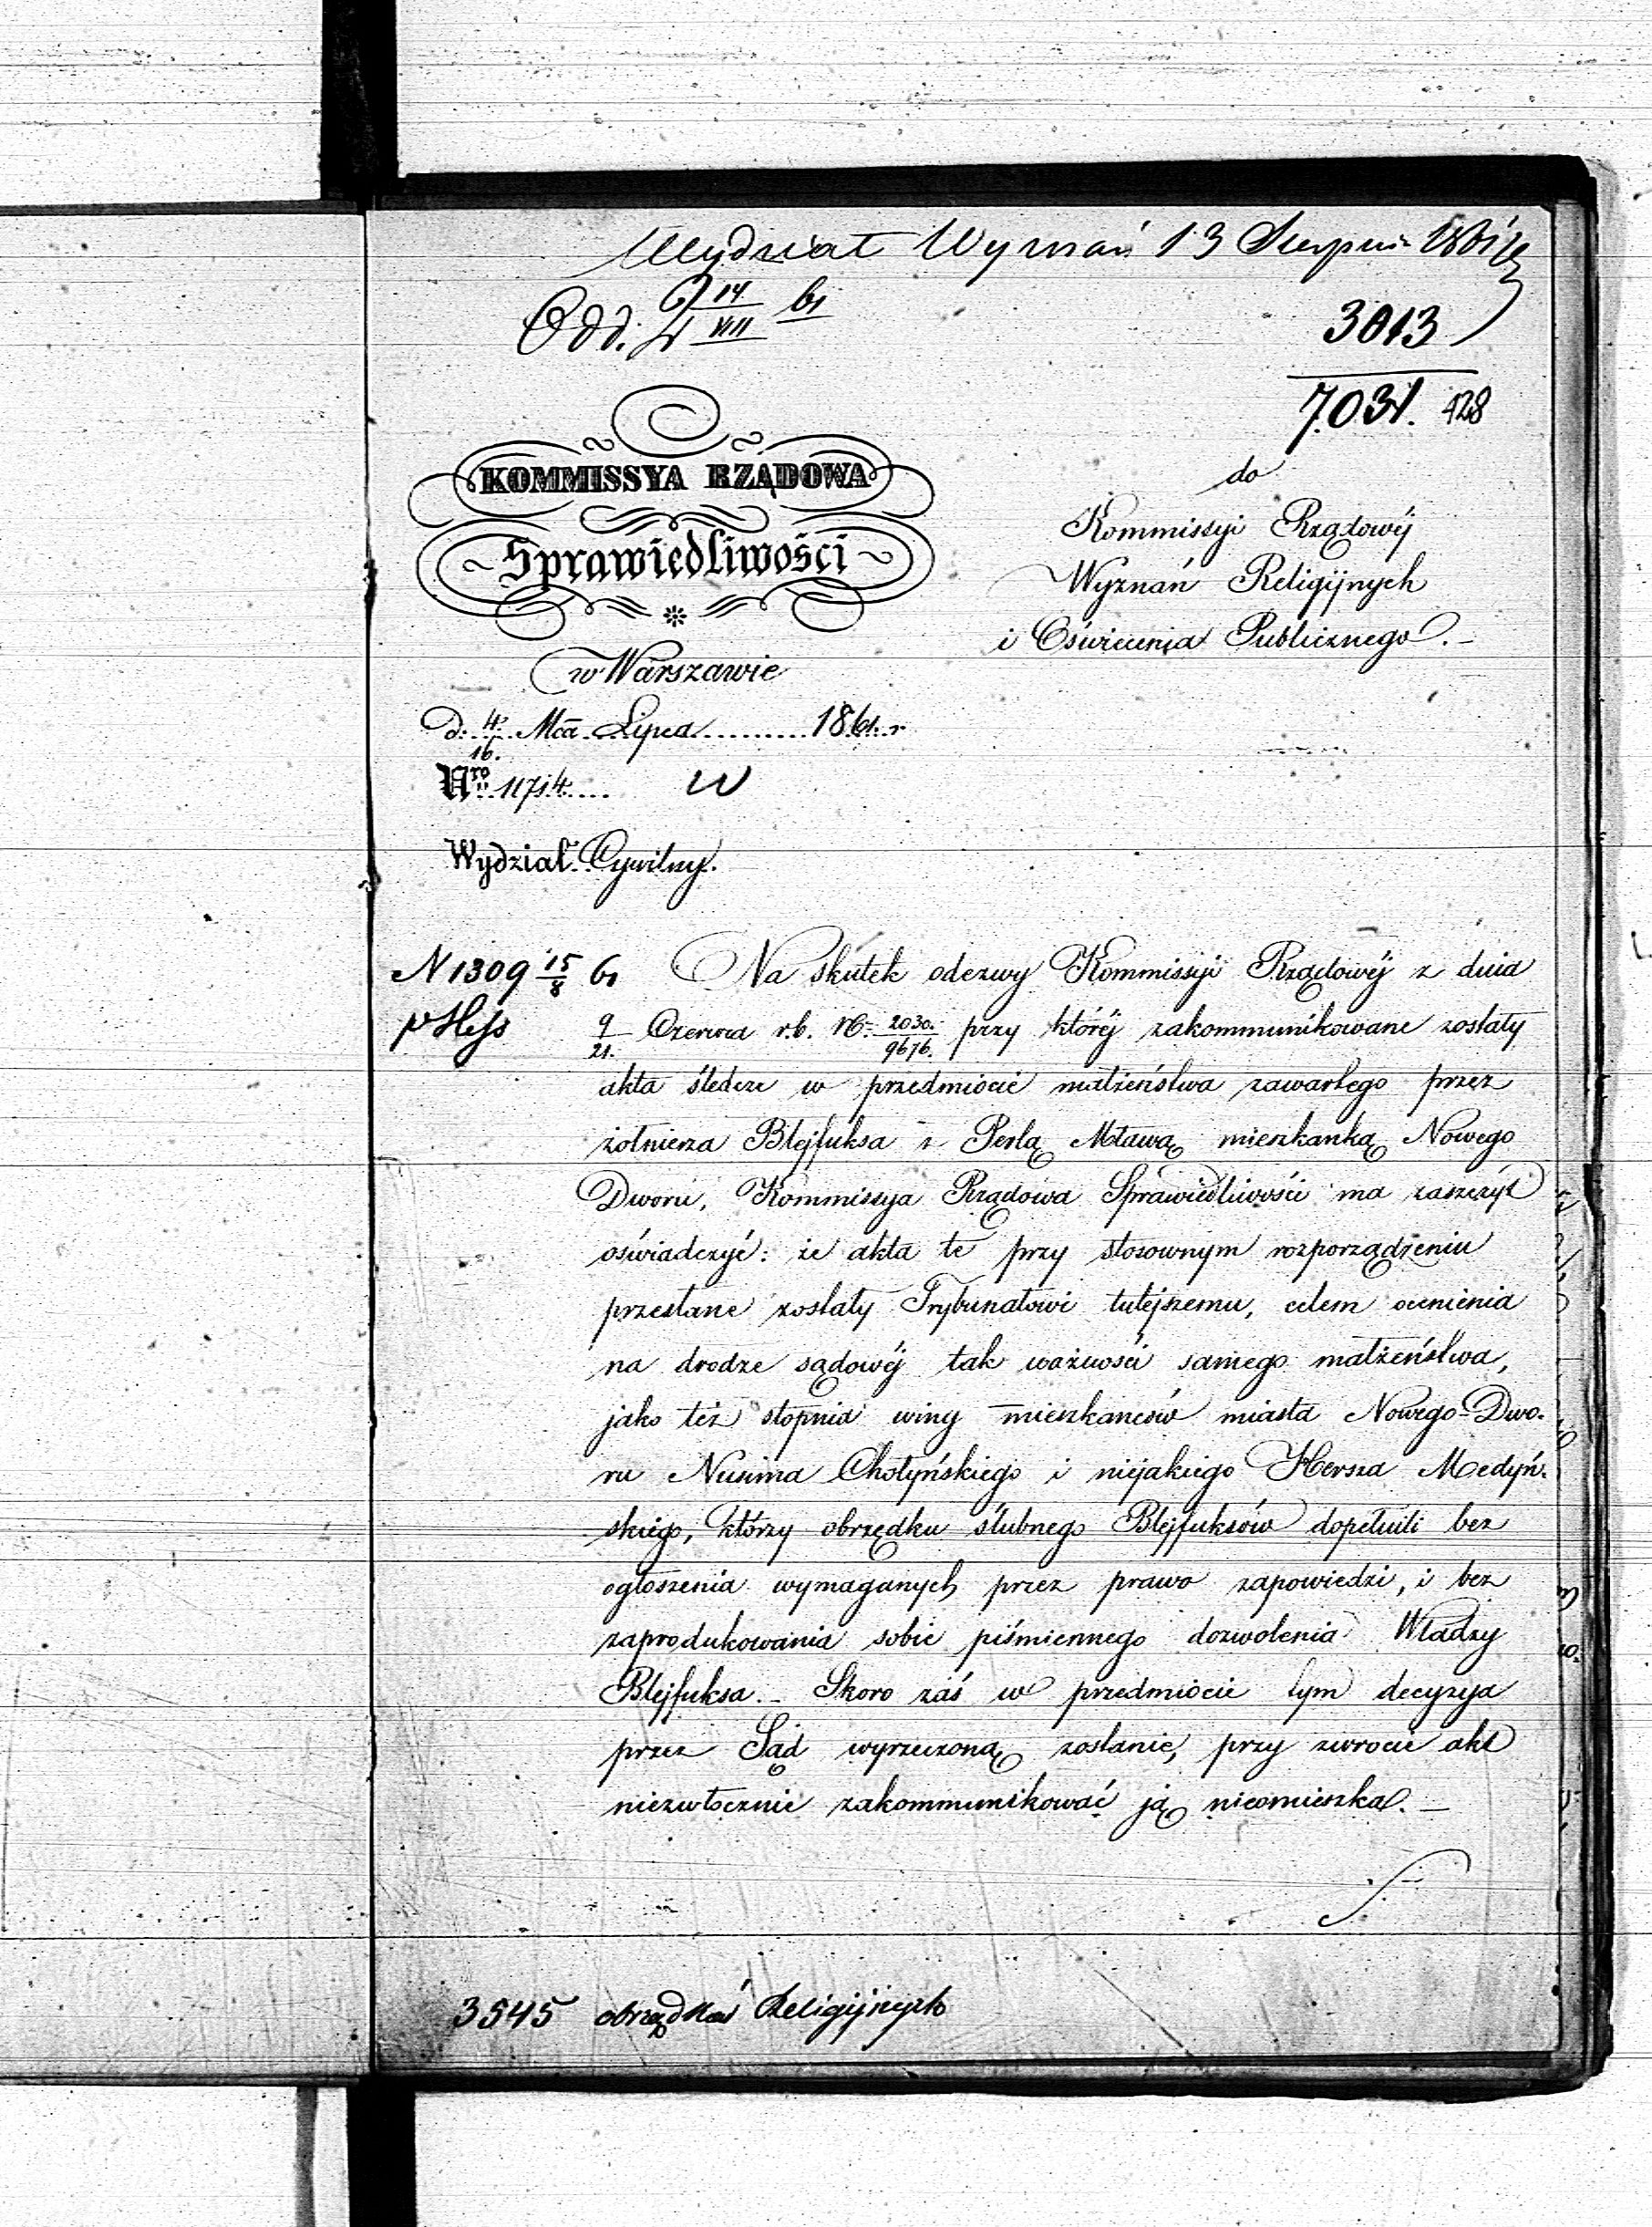 Wydział Wyznań 13 Sierpnia 1861 r
Odd. 2 14/VIII 61
3013
7031. 428
KOMMISSYA RZĄDOWA
Sprawiedliwości
w Warszawie
D. 4/16. Mca Lipca 1861 r
Nro 11714
W
Wydział Cywilny.
do
Kommissyi Rządowéj
Wyznań Religijnych
i Oświecenia Publicznego.
N 1309 15/8 61
Na skutek odezwy Kommissyi Rządowéj z dnia
9/21. Czerwca r.b. N: 2030./9676. przy któréj zakommunikowane zostały
akta śledcze w przedmiocie małżeństwa zawartego przez
żołnierza Blejfuksa z Perlą Mławą mieszkanką Nowego
Dworu, Kommissya Rządowa Sprawiedliwości ma zaszczyt
oświadczyć: że akta te przy stosownym rozporządzeniu
przesłane zostały Trybunałowi tutejszemu, celem ocenienia
na drodze sądowéj tak ważności samego małżeństwa,
jako też stopnia winy mieszkańców miasta Nowego-Dwo-
ru Nusima Chołyńskiego i niejakiego Hersza Medyń-
skiego, którzy obrzędku ślubnego Blejfuksów dopełnili bez
ogłoszenia wymaganych przez prawo zapowiedzi, i bez
zaprodukowania sobie piśmiennego dozwolenia Władzy
Blejfuksa. – Skoro zaś w przedmiocie tym decyzya
przez Sąd wyrzeczoną zostanie, przy zwrocie akt
niezwłocznie zakommunikować ją nieomieszka. –
3545 obrządków Religijnych